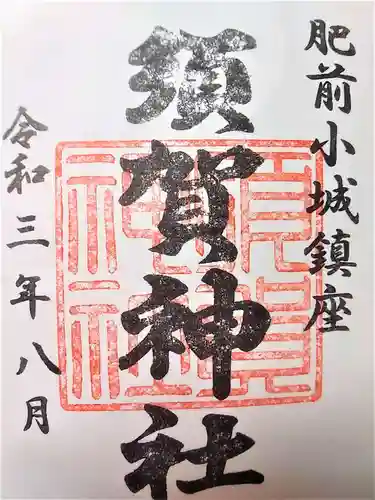 肥前小城鎮座
須賀神社
令和三年八月
須賀神社